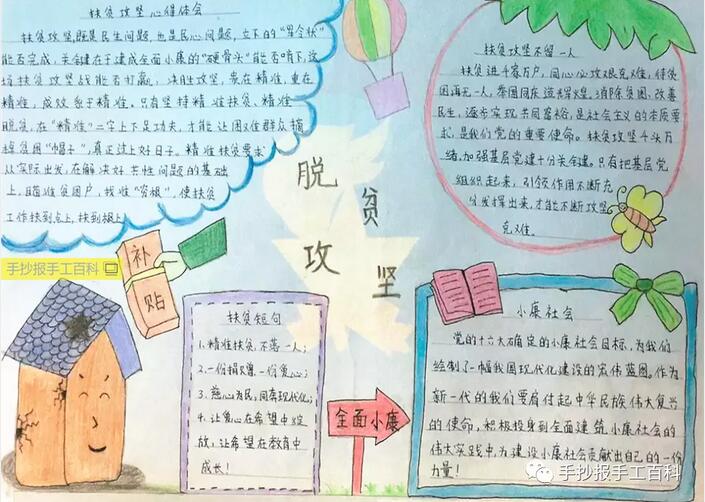 扶贫攻坚心得体会
扶贫攻坚,既是民生问题,也是民心问题,立下的"军令状"
能否完成,关键在于建成全面小康的"硬骨头"能否啃下,这
场扶贫攻坚战能否打赢,决胜攻坚,贵在精准,重在
精准,成效系于精准。只有坚持精准扶贫、精准
脱贫,在"精准"二字上下足功夫,才能让困难群众摘
掉贫困"帽子",真正过上好日子。精准扶贫要求
从实际出发,在解决好共性问题的基础
上,瞄准贫困户,找准"穷根",使扶贫
工作扶到点上,扶到根上。
扶贫攻坚不留一人
扶贫进千家万户,同心必攻艰克难,待贫
困再无一人,泰国同庆造共辉煌,消除贫困,改善
民生,逐步实现共同富裕,是社会主义的本质要
求,是我们党的重要使命。扶贫攻坚千头万
绪,加强基层党建十分关键。只有把基层党
组织起来,引领作用不断充
分发挥出来,才能不断攻坚
克难。
脱
贫
攻
坚
手抄报手工百科
补
贴
扶贫短句
1.精准扶贫,不落一人;
2.一份捐赠,一份爱心;
3.慈心为民,同奔现代化;
4.让爱心在希望中绽
放,让希望在教育中
成长!
全面小康
小康社会
党的十六大确定的小康社会目标,为我们
绘制了一幅我国现代化建设的宏伟蓝图。作为
新一代的我们要肩付起中华民族伟大复兴
的使命,积极投身到全面建筑小康社会的
伟大实践中为建设小康社会贡献出自己的一份
力量!
手抄报手工百科